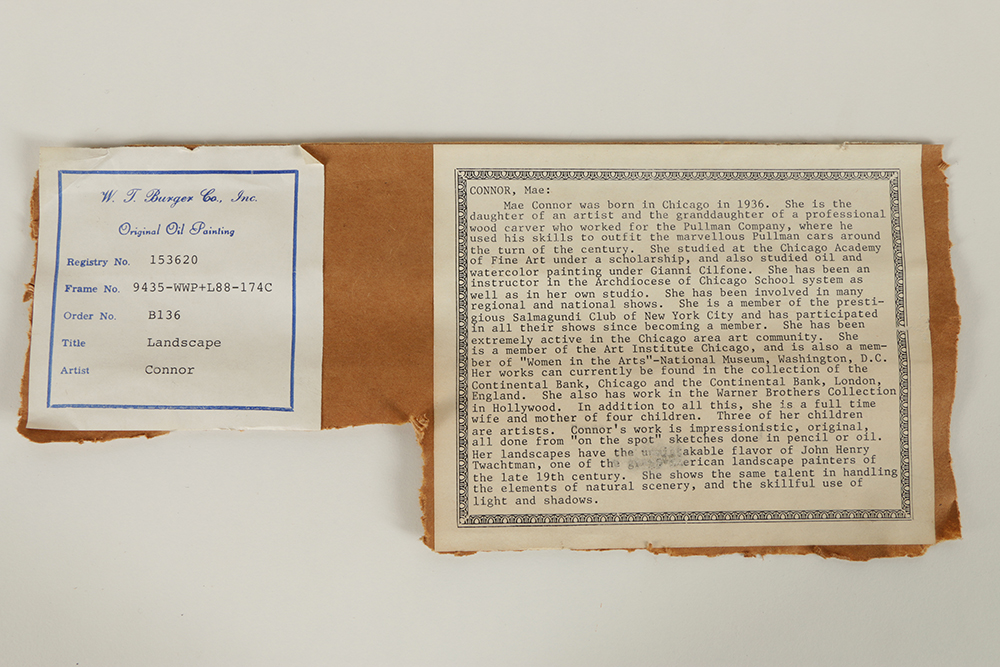 W. T. Burger Co., Inc.
Original Oil Painting
Registry No. 153620
Frame No. 9435-WWP+L88-174C
Order No. B136
Title Landscape
Artist Connor
CONNOR, Mae:
Mae Connor was born in Chicago in 1936. She is the
daughter of an artist and the granddaughter of a professional
wood carver who worked for the Pullman Company, where he
used his skills to outfit the marvellous Pullman cars around
the turn of the century. She studied at the Chicago Academy
of Fine Art under a scholarship, and also studied oil and
watercolor painting under Gianni Cilfone. She has been an
instructor in the Archdiocese of Chicago School system as
well as in her own studio. She has been involved in many
regional and national shows. She is a member of the presti-
gious Salmagundi Club of New York City and has participated
in all their shows since becoming a member. She has been
extremely active in the Chicago area art community. She
is a member of the Art Institute Chicago, and is also a mem-
ber of "Women in the Arts"-National Museum, Washington, D.C.
Her works can currently be found in the collection of the
Continental Bank, Chicago and the Continental Bank, London,
England. She also has work in the Warner Brothers Collection
in Hollywood. In addition to all this, she is a full time
wife and mother of four children. Three of her children
are artists. Connor's work is impressionistic, original,
all done from "on the spot" sketches done in pencil or oil.
Her landscapes have the flavor of John Henry
Twachtman, one of landscape painters of
the late 19th century. She shows the same talent in handling
the elements of natural scenery, and the skillful use of
light and shadows.